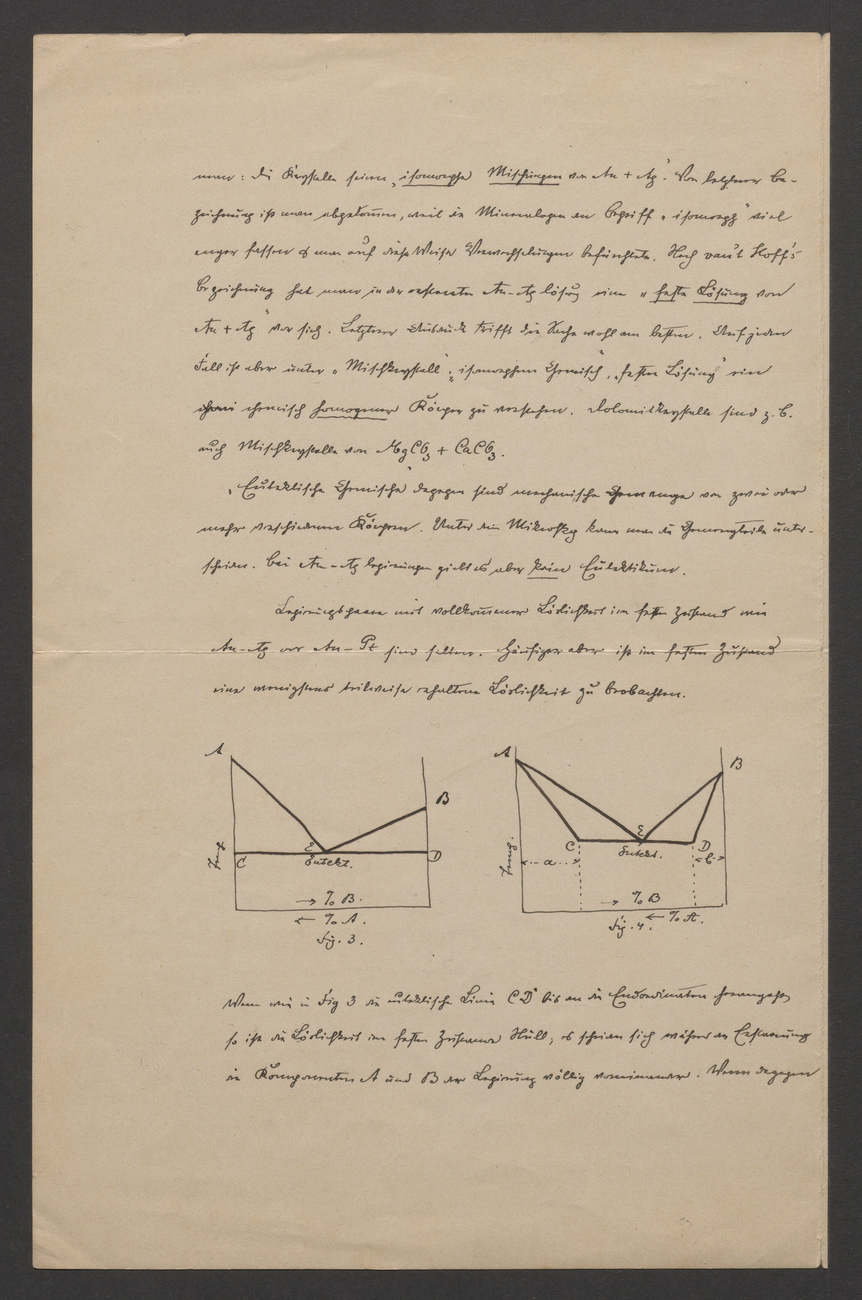 man: die Krystalle seien „isomorphe Mischungen von Au + Ag". Von letzterer Be-
zeichnung ist man abgekommen, weil die Mineralogen den Begriff „isomorph" viel
enger fassen & man auf diese Weise Verwechselungen befürchtete. Nach van't Hoff's
Bezeichnung hat man in der erstarrten Au-Ag lösung eine „feste Lösung von
Au + Ag" vor sich. Letzterer Ausdruck trifft die Sache wohl am besten. Auf jeden
Fall ist aber unter „Mischkrystall", „isomorphem Gemisch", „festen Lösung" ein
chemisch homogener Körper zu verstehen. Dolomitkrystalle sind z. B.
auch Mischkrystalle von MgCO3 + CaCO3.
„Eutektische Gemische" dagegen sind mechanische Gemenge von zwei oder
mehr verschiedenen Körpern. Unter dem Mikroskop kann man die Gemengteile unter-
scheiden. Bei Au-Ag legierungen giebt es aber kein Eutektikum.
Legierungspaare mit vollkommener Löslichkeit im festen Zustand wie
Au-Ag oder Au-Pt sind selten. Häufiger aber ist im festen Zustand
eine wenigstens teilweise erhaltene Löslichkeit zu beobachten.
A
B
E
C
D
Eutekt.
Temp.
→ % B.
← % A.
Fig. 3.
A
B
E
C
D
Eutekt.
Temp.
a
b
→ % B
← % A.
Fig. 4.
Wenn wie in Fig 3 die eutektische Linie C D bis an die Endordinaten herangeht,
so ist die Löslichkeit im festen Zustande Null; es scheiden sich während der Erstarrung
die Komponenten A und B der Legierung völlig voneinander. Wenn dagegen